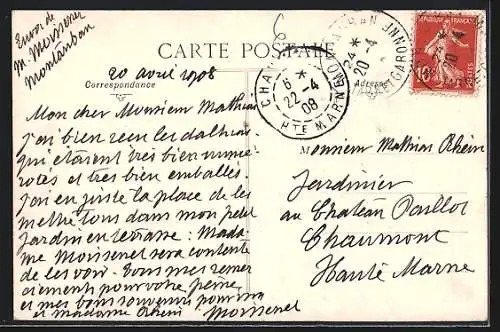 Envoi de
M. Moissenet
Montauban
CARTE POSTALE
Correspondance
Adresse
20 avril 1908
Mon cher Monsieur Mathias
J'ai bien reçu les dalhias
qui étaient très bien numé
rotés et très bien emballés.
J'ai eu juste la place de les
mettre tous dans mon petit
jardin en terrasse: Mada
me Moissenet sera contente
de les voir. Tous mes remer
ciements pour votre peine
et mes bons souvenirs pour vous
et madame Rhein Moissenet
CHA
6 *
22-4
08
HTE MARNE
24 *
20-4
GARONNE
REPUBLIQUE FRANÇAISE
10
POSTES
M
Monsieur Mathias Rhein
Jardinier
au Château Paillot
Chaumont
Haute Marne